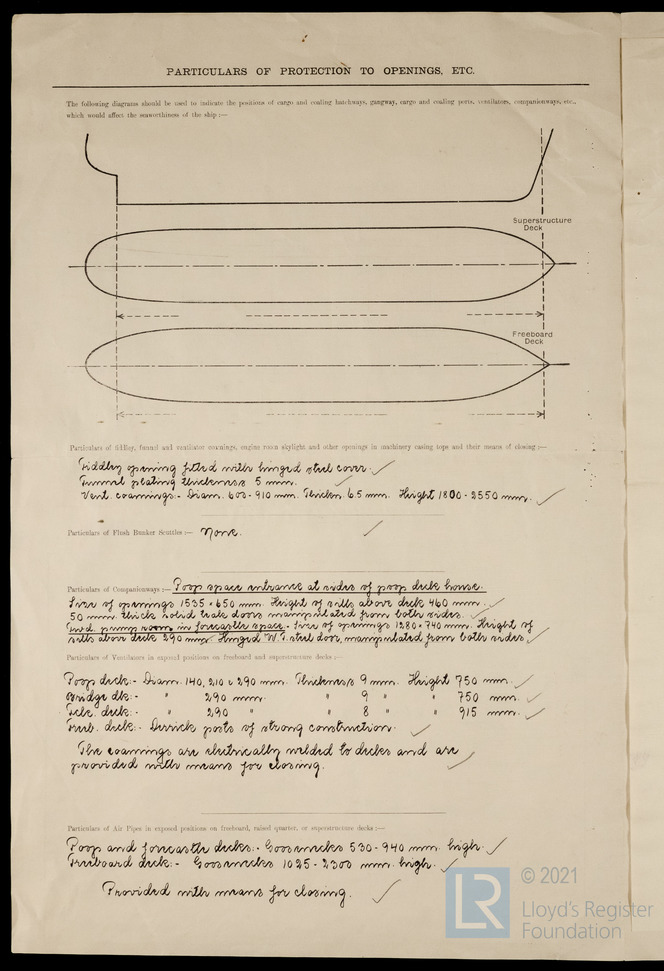 PARTICULARS OF PROTECTION TO OPENINGS, ETC.
The following diagrams should be used to indicate the positions of cargo and coaling hatchways, gangway, cargo and coaling ports, ventilators, companionways, etc.,
which would affect the seaworthiness of the ship :—
Superstructure
Deck
Freeboard
Deck
Particulars of fiddley, funnel and ventilator coamings, engine room skylight and other openings in machinery casing tops and their means of closing :—
Fiddley opening fitted with hinged steel cover. ✓
Funnel plating thickness 5 mm. ✓
Vent coamings:- Diam. 600-910 mm. Thickn. 6.5 mm. Height 1800-2550 mm. ✓
Particulars of Flush Bunker Scuttles :— None. ✓
Particulars of Companionways :— Poop space entrance at sides of poop deck house.
Size of openings 1535 × 650 mm. Height of sills above deck 460 mm. ✓
50 mm. thick solid teak doors manipulated from both sides. ✓
Fwd. pump room in forecastle space:- Size of openings 1280 × 740 mm. Height of
sills above deck 290 mm. Hinged W.T. steel door, manipulated from both sides ✓
Particulars of Ventilators in exposed positions on freeboard and superstructure decks :—
Poop deck:- Diam. 140, 210 & 290 mm. Thickness 9 mm. Height 750 mm. ✓
Bridge dk:- " 290 mm. " 9 " " 750 mm. ✓
Fcle. deck:- " 290 " " 8 " " 915 mm. ✓
Freeb. deck:- Derrick posts of strong construction. ✓
The coamings are electrically welded to decks and are
provided with means for closing. ✓
Particulars of Air Pipes in exposed positions on freeboard, raised quarter, or superstructure decks :—
Poop and forecastle decks:- Goosenecks 530-940 mm. high. ✓
Freeboard deck:- Goosenecks 1025-2300 mm. high. ✓
Provided with means for closing. ✓
LR
© 2021
Lloyd's Register
Foundation